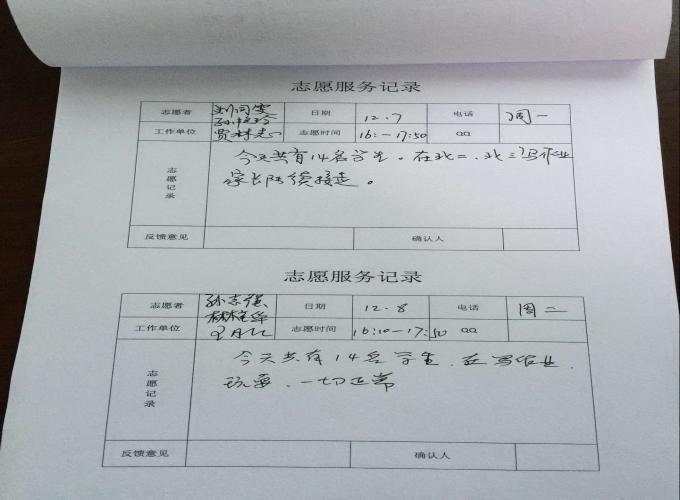 志愿服务记录
志愿者 刘同雯 日期 12.7 电话 周一
孙
工作单位 贾林志 志愿时间 16:—17:50 QQ
志愿记录 今天共有14名学生。在北二、北三写作业
家长陆续接走。
反馈意见 确认人
志愿服务记录
志愿者 孙京强 日期 12.8 电话 周二
工作单位 志愿时间 16:10—17:50 QQ
志愿记录 今天共有14名学生,在写作业,
玩耍,一切正常
反馈意见 确认人